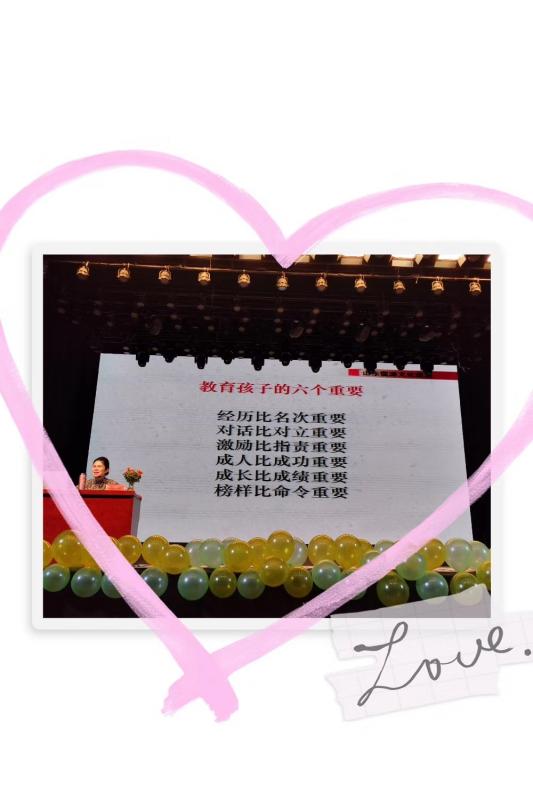 教育孩子的六个重要
经历比名次重要
对话比对立重要
激励比指责重要
成人比成功重要
成长比成绩重要
榜样比命令重要
Love.